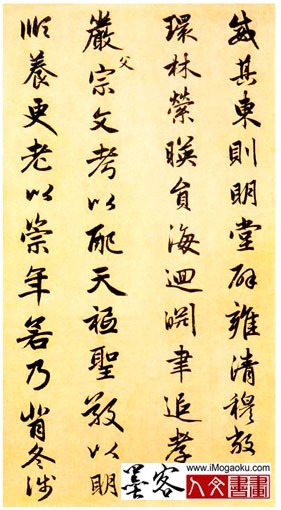 威其東則明堂辟雍清穆敞
環林縈暎員海迴淵聿追孝
嚴父宗文考以配天祗聖敬以明
順養更老以崇年若乃背冬涉
墨客
www.iMogaoku.com
人文書畫